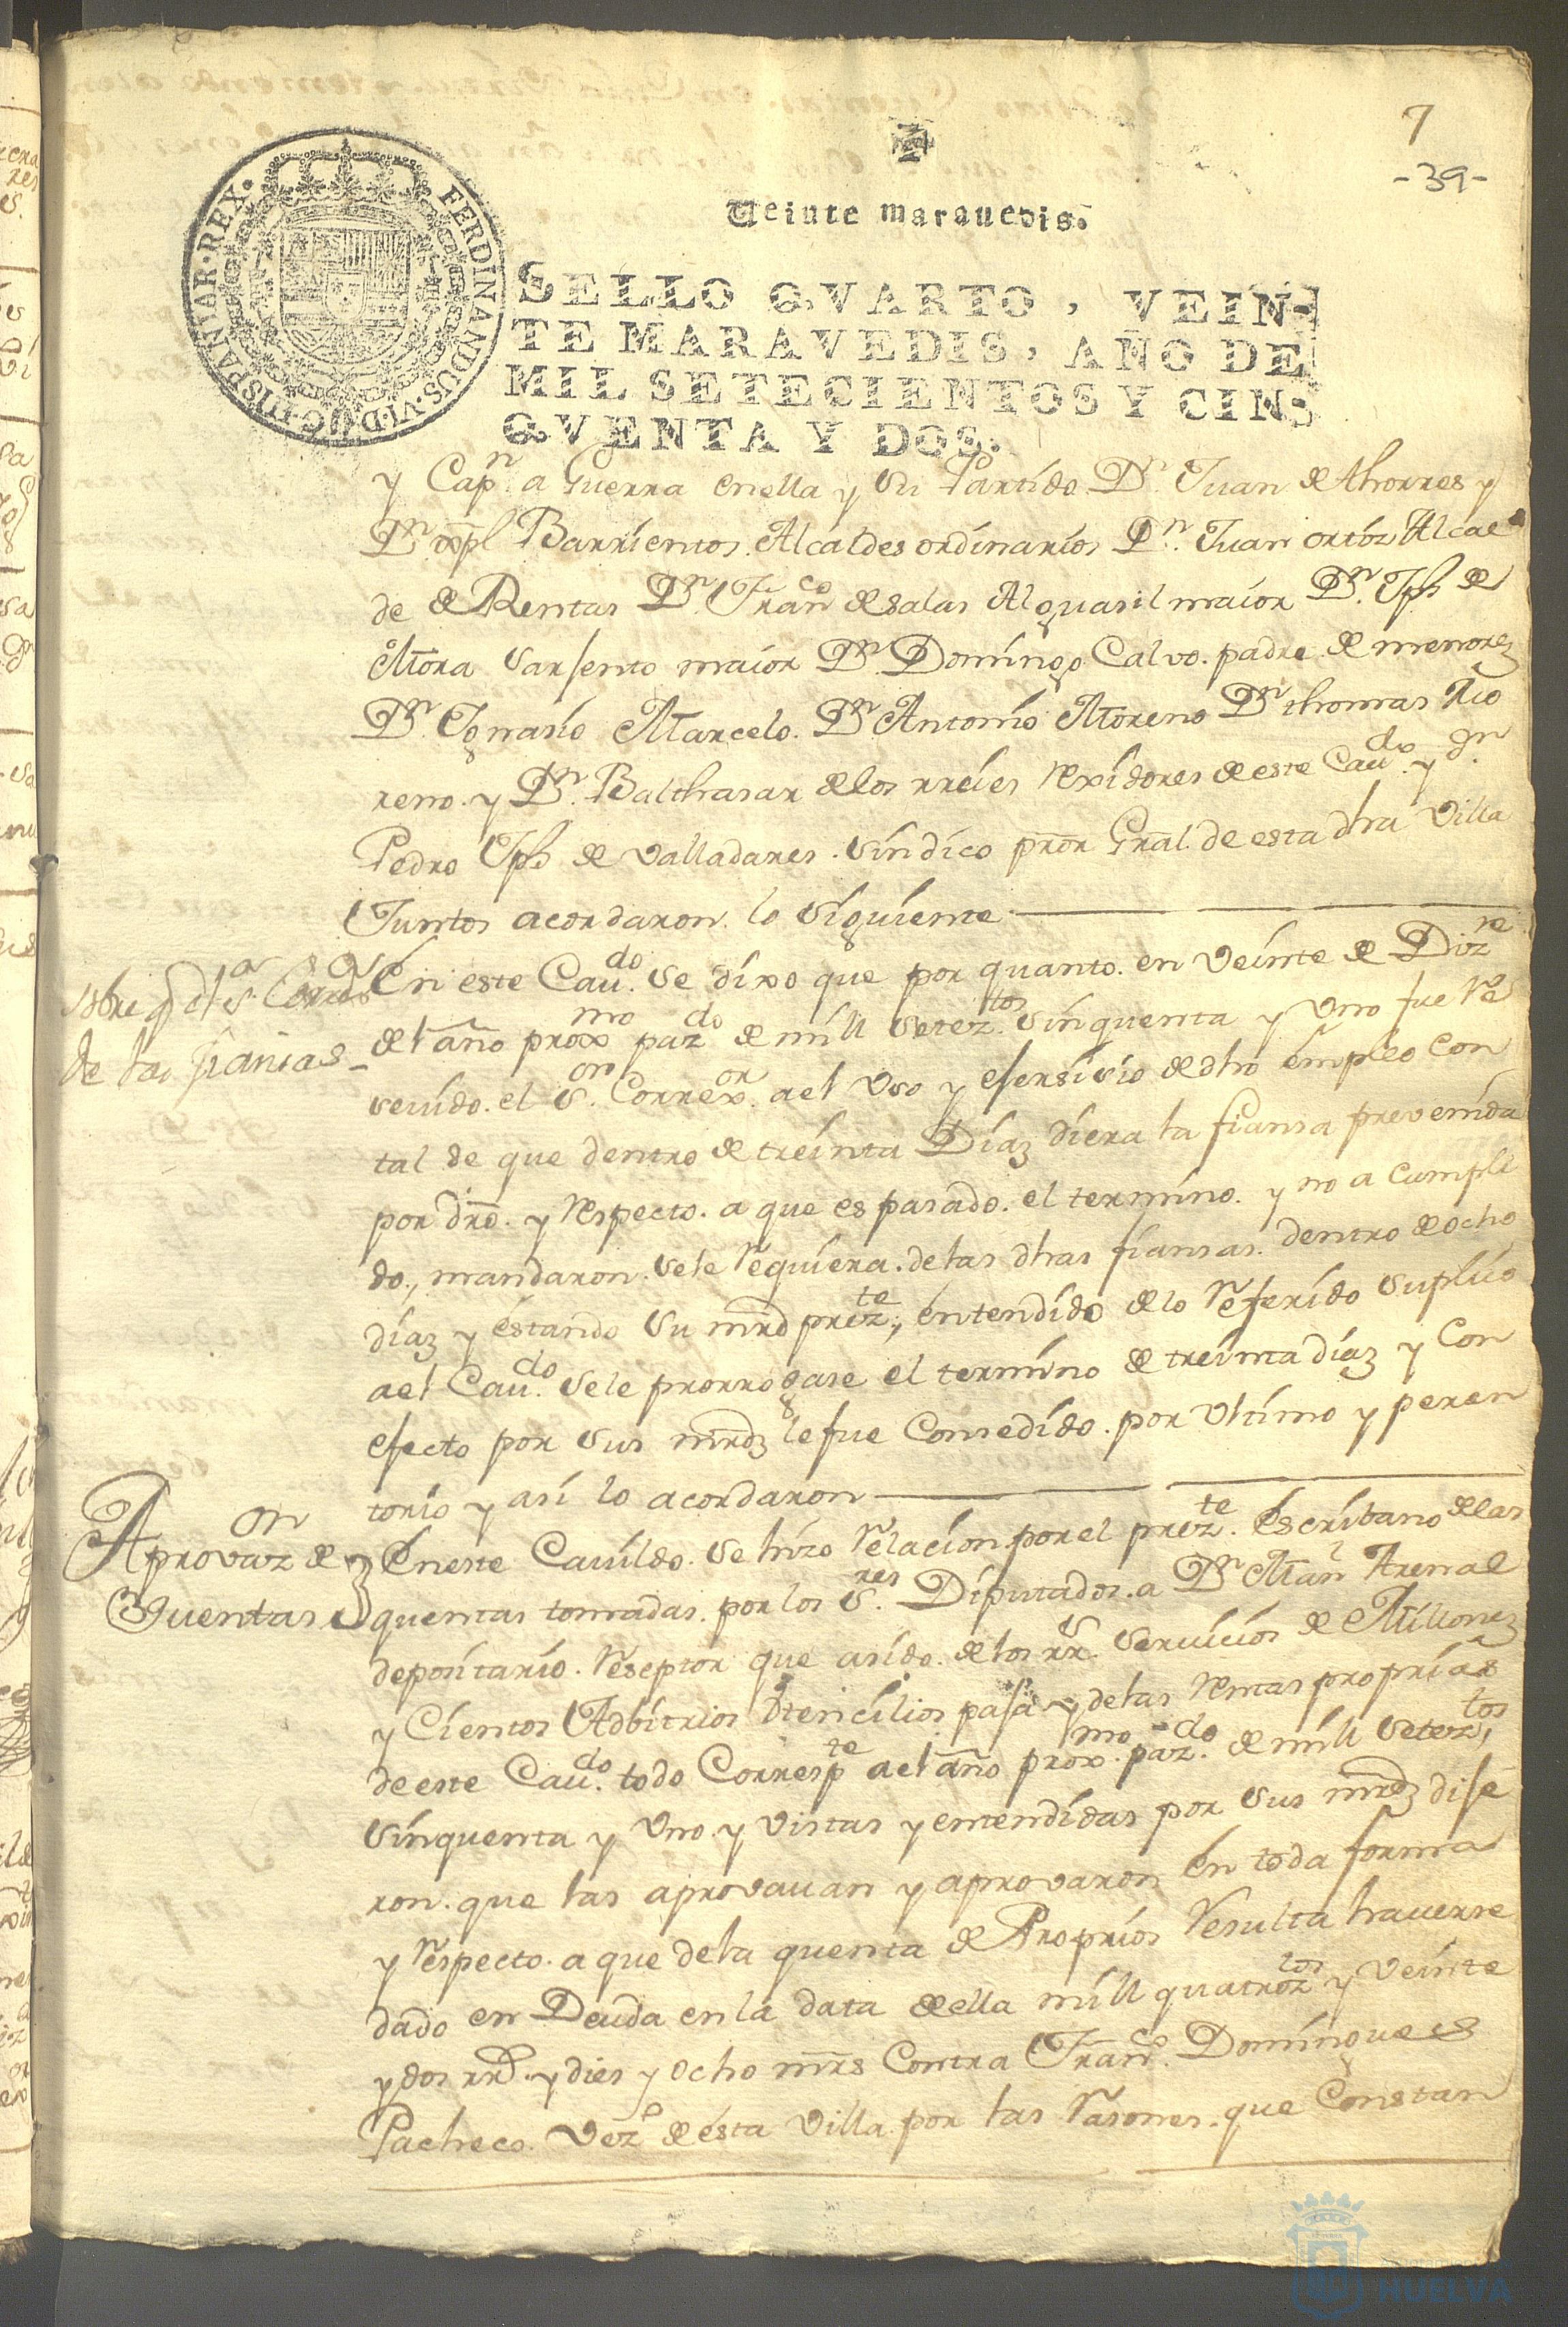 7
-39-
Veinte marauedis.
FERDINANDUS.VI.D.G.HISPANIAR.REX.
SELLO QVARTO, VEIN-
TE MARAVEDIS, AÑO DE
MIL SETECIENTOS Y CIN-
QVENTA Y DOS.
y Capn. a Guerra enella y su Partido Dn. Juan de thorres y
Dn xpl Barrientos. Alcaldes ordinarios Dn. Juan ortiz Alcae
de de Rentas Dn. Franco de salas Alguasil maior Dn. Jph de
Mora sarjento maior Dn. Domingo Calvo. padre de menorez
Dn. Ygnasio Marcelo. Dn Antonio Moreno Dn thomas Mo
reno. y Dn. Balthasar de los rreies rexidores de este Caudo. y Dn.
Pedro Jph de valladares. sindico pror Gral. de esta dha villa
Juntos acordaron. lo siguiente.
En este Caudo. se dixo que por quanto. en veinte de Dizre.
sobre q dl sr. Corror
de las fiansas
del año proxmo pazdo de mill seteztos. sinquenta y uno fue re
seuido. el sor. Correxor. ael uso y ejersisio de dho empleo con
tal de que dentro de treinta Diaz diera la fiansa prevenida
por dro. y respecto. a que es pasado. el termino. y no a cumpli
do., mandaron. sele requiera. de las dhas fiansas. dentro de ocho
diaz y estando su mrd prezte., entendido de lo referido suplico
ael Caudo. sele prorrogase el termino de treinta diaz y con
efecto por sus mrdz le fue Consedido. por ultimo y peren
torio y asi lo acordaron
Aprovazon de
Cuentas
En este Cauildo. se hizo relacion por el prezte. Escribano de las
quentas tomadas. por los sres. Diputados. a Dn Manl Arenal
depositario. reseptor que asido. de los rrs. seruicios de Millonez
y Cientos Adbitrios Utencilios paja y de las rentas proprias
de este Caudo. todo Correspte ael año proxmo. pazdo. de mill seteztos,
sinquenta y uno. y vistas y entendidas por sus mrdz dije
ron. que las aprovauan y aprovaron en toda forma
y respecto. a que de la quenta de Proprios resulta hauerse
dado en Deuda en la data de ella mill quatroztos y veinte
y dos rrs. y dies y ocho mrs Contra Franco. Domingues
Pacheco. vezo de esta villa. por las rasones. que Constan
HUELVA